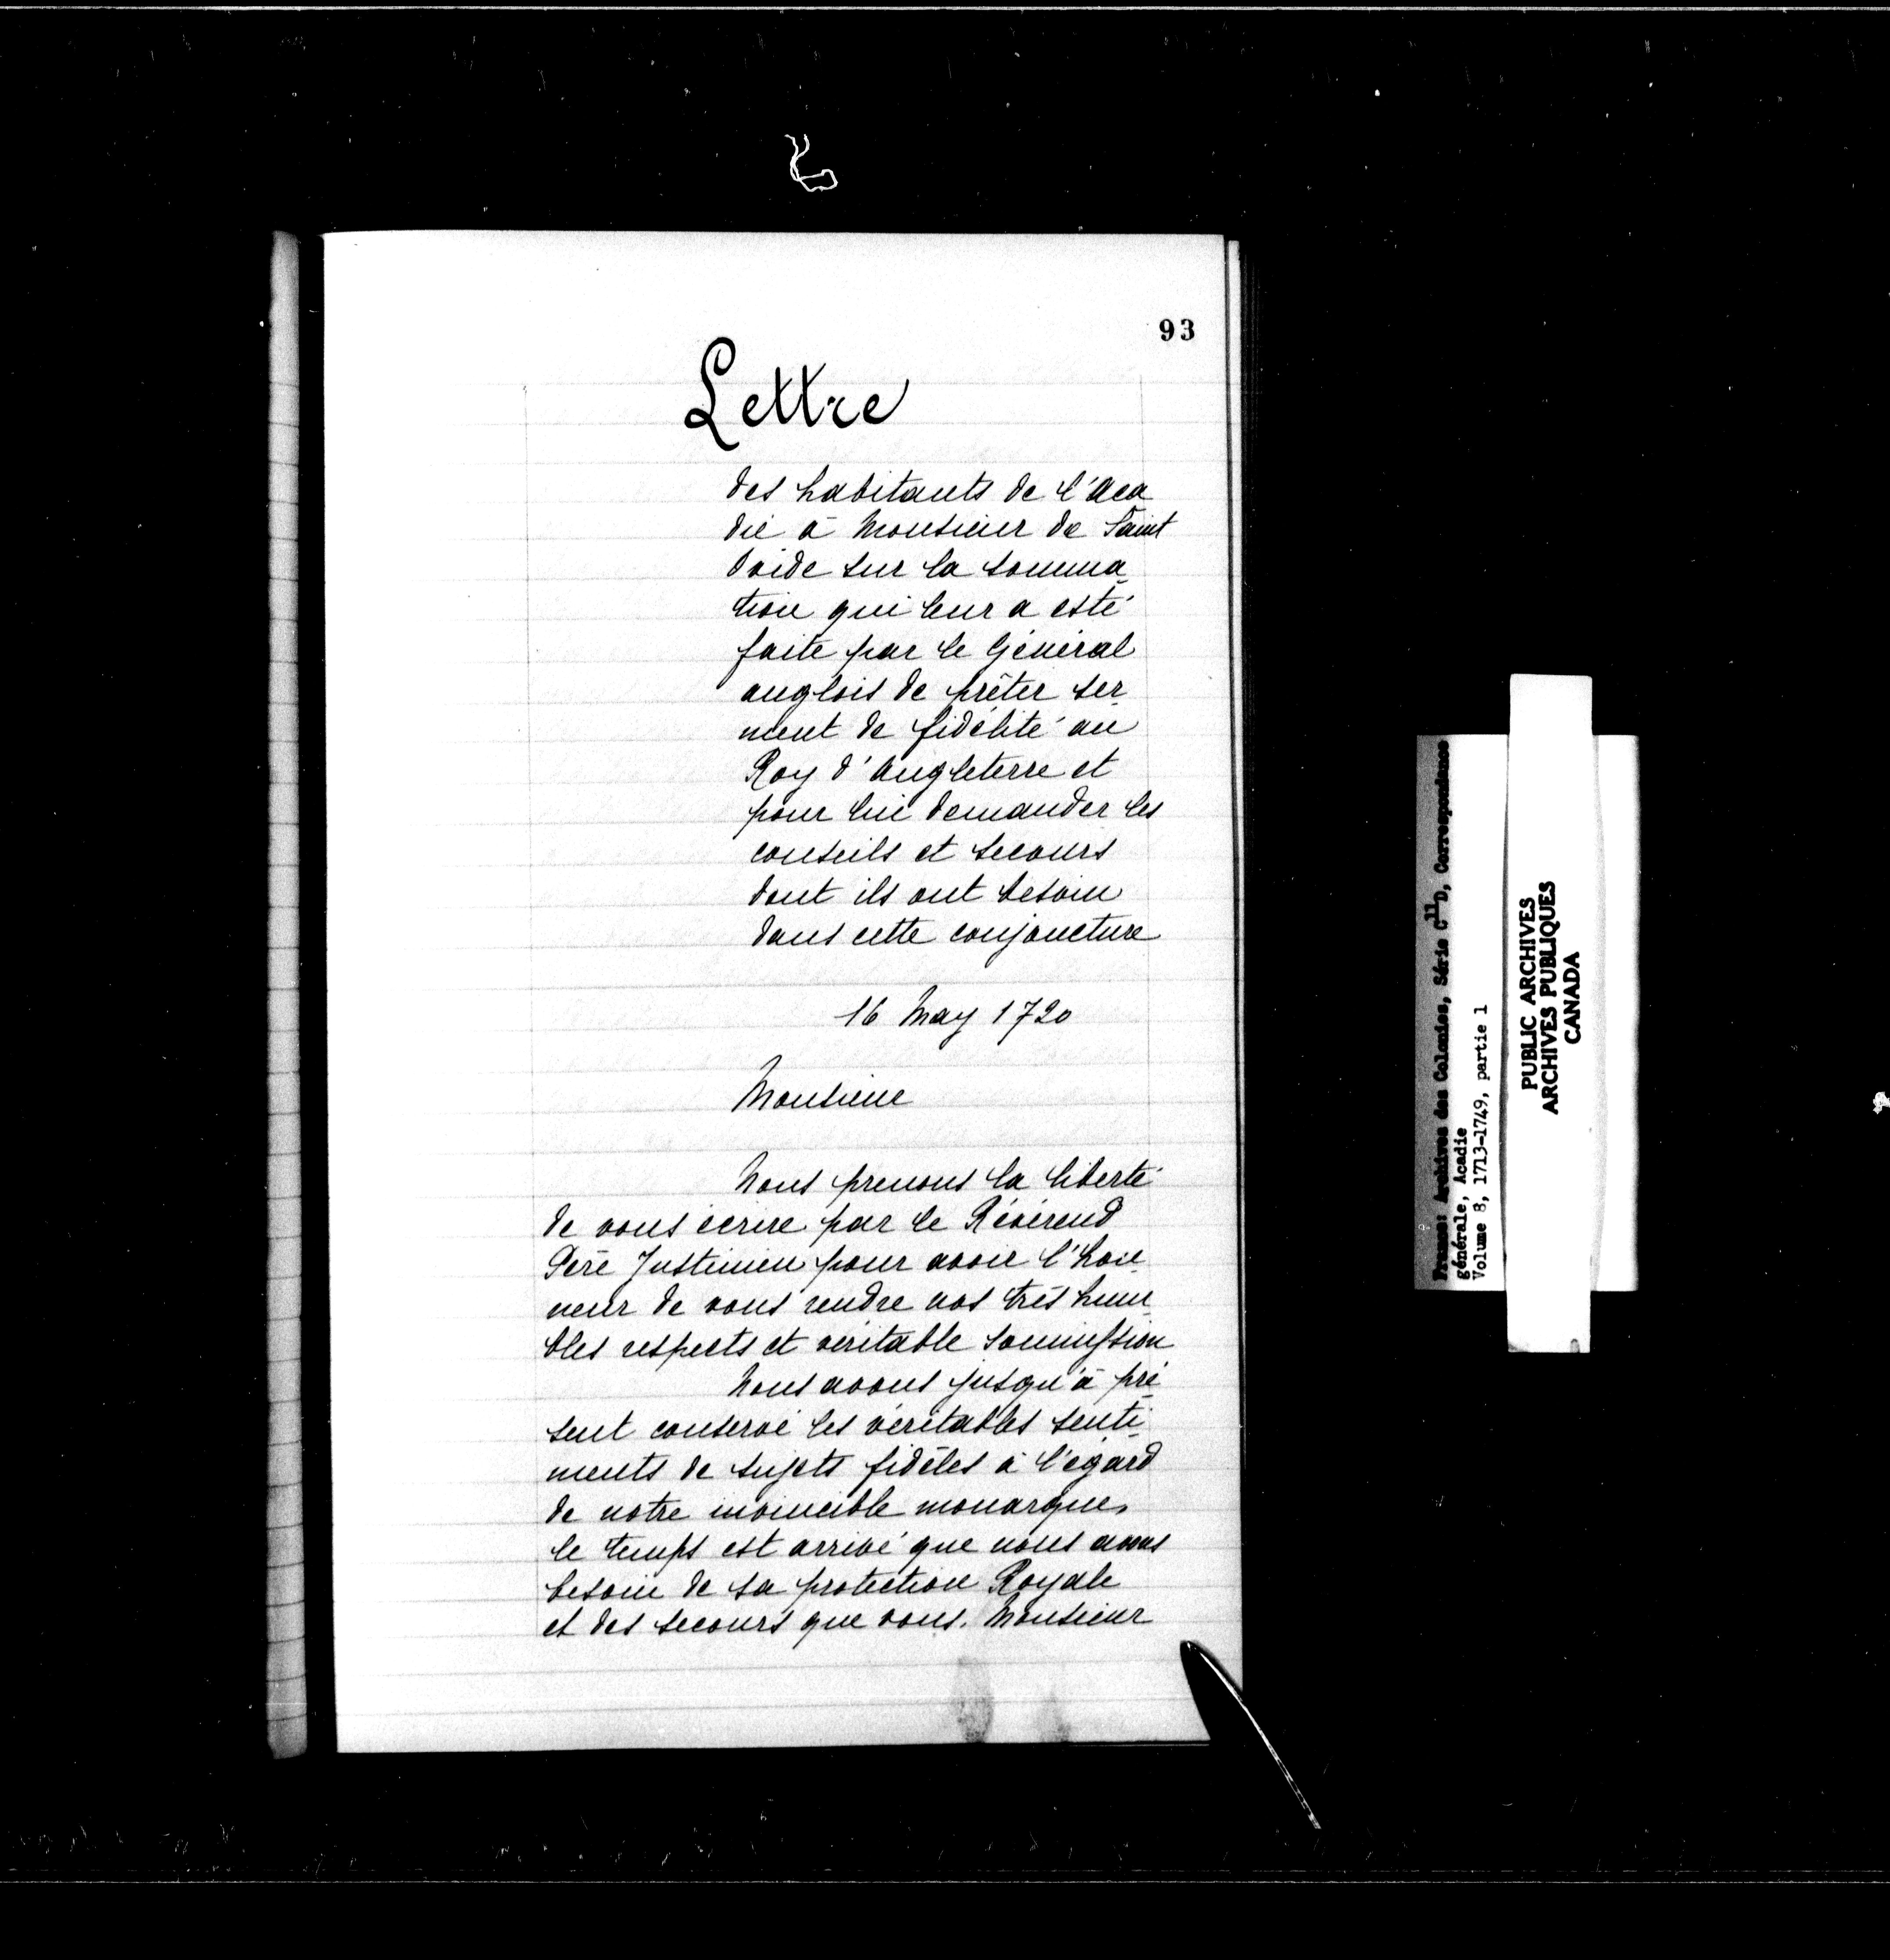 93
Lettre
des habitants de l'Aca
die à Monsieur de Saint
Ovide sur la somma-
tion qui leur a esté
faite par le Général
anglois de prêter ser-
ment de fidélité au
Roy d'Angleterre et
pour lui demander les
conseils et secours
dont ils ont besoin
dans cette conjoncture
16 May 1720
Monsieur
Nous prenons la liberté
de vous écrire par le Révérend
Père Justinien pour avoir l'hon-
neur de vous rendre nos très hum-
bles respects et véritable soumission
Nous avons jusqu'à pré-
sent conservé les véritables senti-
ments de sujets fidèles à l'égard
de notre invincible monarque,
le temps est arrivé que nous avons
besoin de sa protection Royale
et des secours que vous, Monsieur
France: Archives des Colonies, Série C11D, Correspondance
générale, Acadie
Volume 8, 1713-1749, partie 1
PUBLIC ARCHIVES
ARCHIVES PUBLIQUES
CANADA